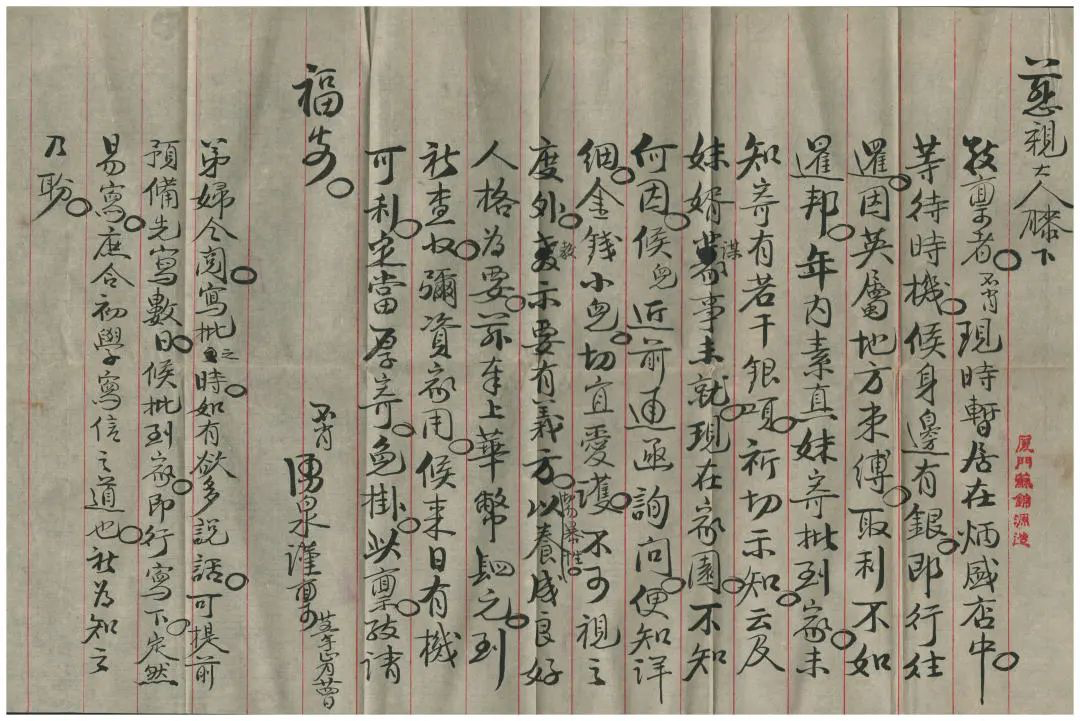 慈親大人膝下
敬稟者。不肖現時暫居在炳盛店中。
等待時機。候身邊有銀。即行往
暹。因英屬地方束縛。取利不如
暹邦。年內素真妹寄批到家。未
知寄有若干銀項。祈切示知。云及
妹婿謀事未就。現在家園。不知
何因。候兒近前通函詢问。便知詳
細。金錢小兒。切宜愛護。不可視之
度外。教示要有義方。以養成良好
人格為要。茲奉上華幣元。到
祈查收。彌資家用。候來日有機
可利。定當厚寄。免掛。此稟。敬請
福安。
不肖勇泉謹稟
弟婦令閱。寫批之時。如有欲多說話。可提前
預備先寫數日。候批到家。即行寫下。定然
易寫。庶合初學寫信之道也。祈為知之
乃盼。
廈門蘇錦源造